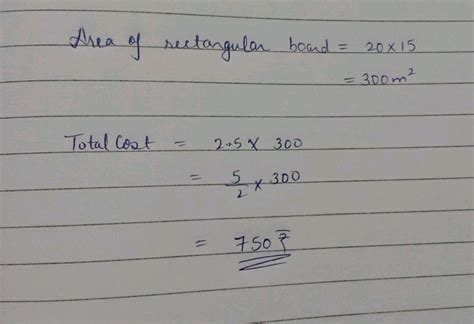 Area of rectangular board = 20 x 15
= 300 m²
Total Cost = 2.5 x 300
= 5/2 x 300
= 750 ₹